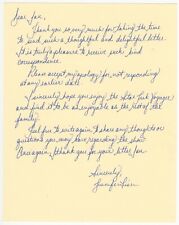 Dear Joe,
Thank you so much for taking the time
to send such a thoughtful and delightful letter.
It is truly a pleasure to receive such kind
correspondence.
Please accept my apology for not responding
at any earlier date.
I sincerely hope you enjoy the Star Trek Voyager
and find it to be an enjoyable as the rest of the
family.
Feel free to write again to share any thoughts or
questions you may have regarding the show.
Once again, thank you for your letter
Sincerely,
Jennifer Lien